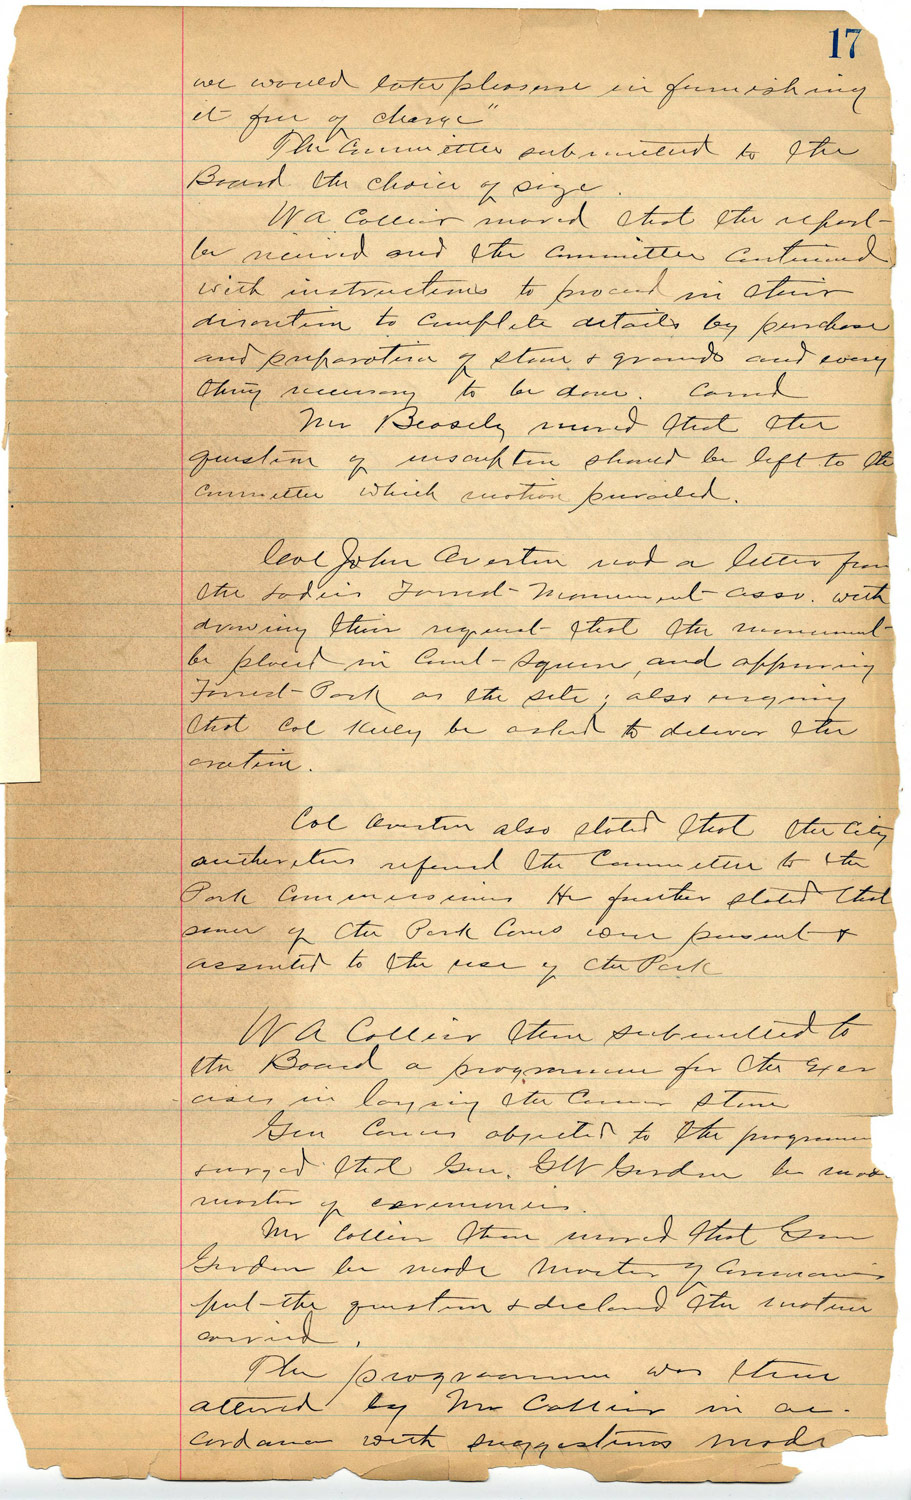 17
we would take pleasure in furnishing
it free of charge"
The Committee submitted to the
Board the choice of size.
W A Collier moved that the report
be received and the Committee continued
with instructions to proceed in their
discretion to complete details by purchase
and preparation of stone & grounds and every
thing necessary to be done. Carried
Mr Beasely moved that the
question of inscription should be left to the
Committee which motion prevailed.
Col John Overton read a letter from
the Ladies Forrest-Monument-Asso. with
drawing their request that the monument
be placed in Court-Square, and approving
Forrest-Park as the site; also urging
that Col Kelly be asked to deliver the
oration.
Col Overton also stated that the City
authorities referred the Committee to the
Park Commissioners He further stated that
some of the Park Coms were present &
assented to the use of the Park
W A Collier then submitted to
the Board a programme for the Exer
cises in laying the Corner Stone
Gen objected to the programme
& urged that Gen. GW Gordon be made
master of ceremonies.
Mr Collier then moved that Gen
Gordon be made Master of Ceremonies
put the question & declared the motion
carried.
The programme was then
altered by Mr Collier in ac-
cordance with suggestions made